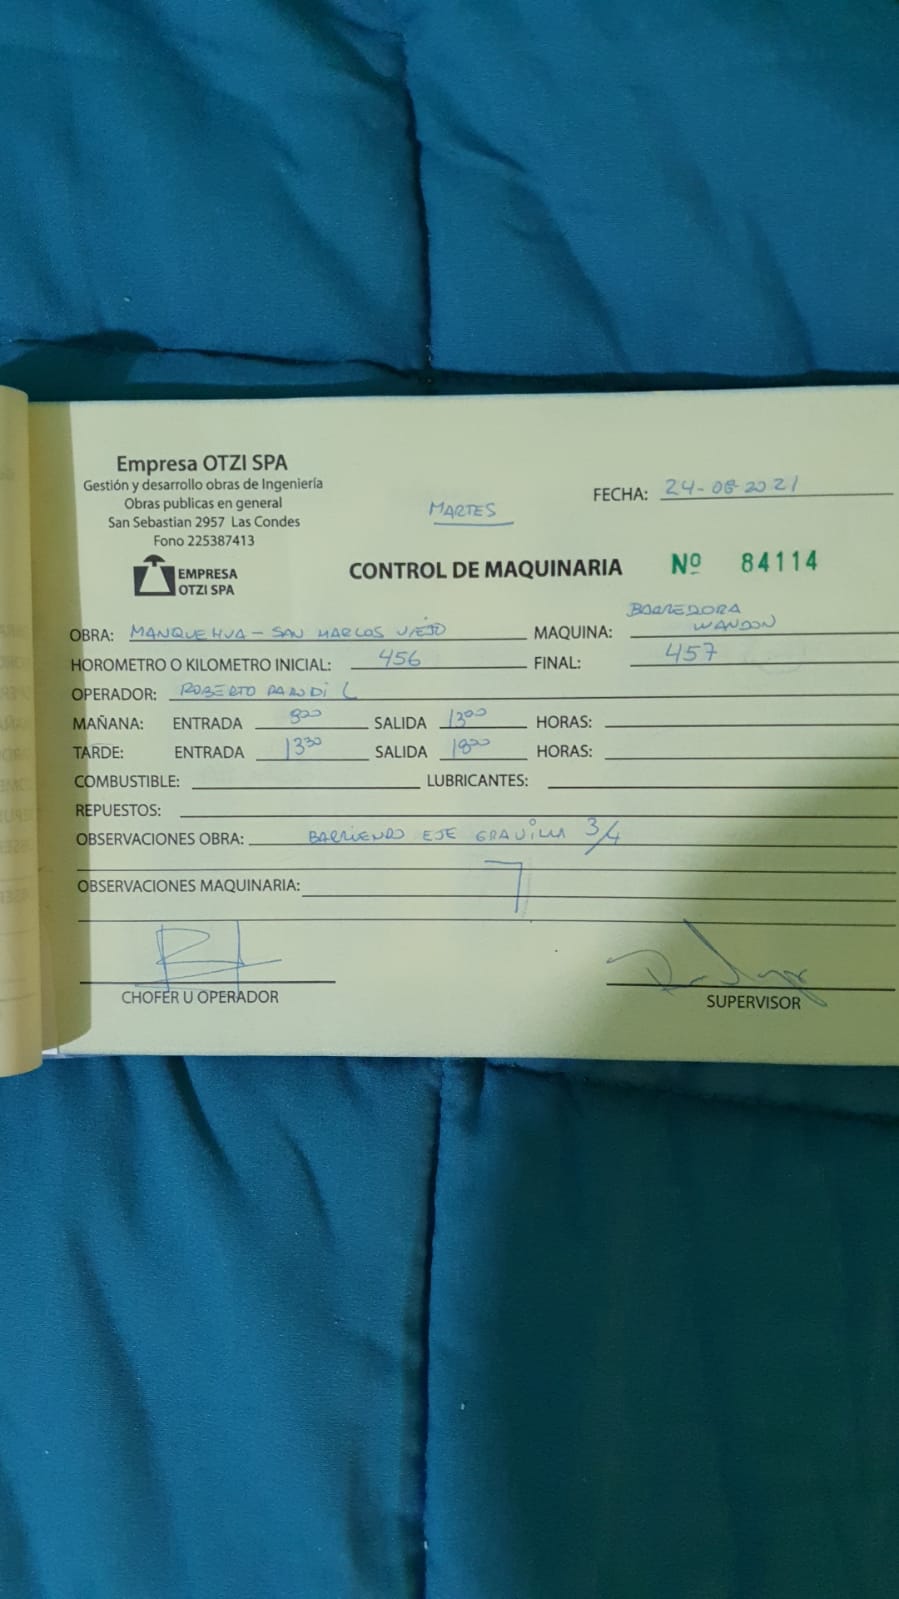 Empresa OTZI SPA
Gestión y desarrollo obras de Ingeniería
Obras publicas en general
San Sebastian 2957 Las Condes
Fono 225387413
EMPRESA
OTZI SPA
MARTES
FECHA: 24-08-2021
CONTROL DE MAQUINARIA Nº 84114
OBRA: MANQUEHUA - SAN MARCOS VIEJO MAQUINA: BARREDORA
HOROMETRO O KILOMETRO INICIAL: 456 FINAL: 457
OPERADOR: ROBERTO
MAÑANA: ENTRADA 800 SALIDA 1300 HORAS:
TARDE: ENTRADA 1330 SALIDA 1800 HORAS:
COMBUSTIBLE: LUBRICANTES:
REPUESTOS:
OBSERVACIONES OBRA: BARRIENDO EJE GRAVILLA 3/4
OBSERVACIONES MAQUINARIA:
CHOFER U OPERADOR
SUPERVISOR